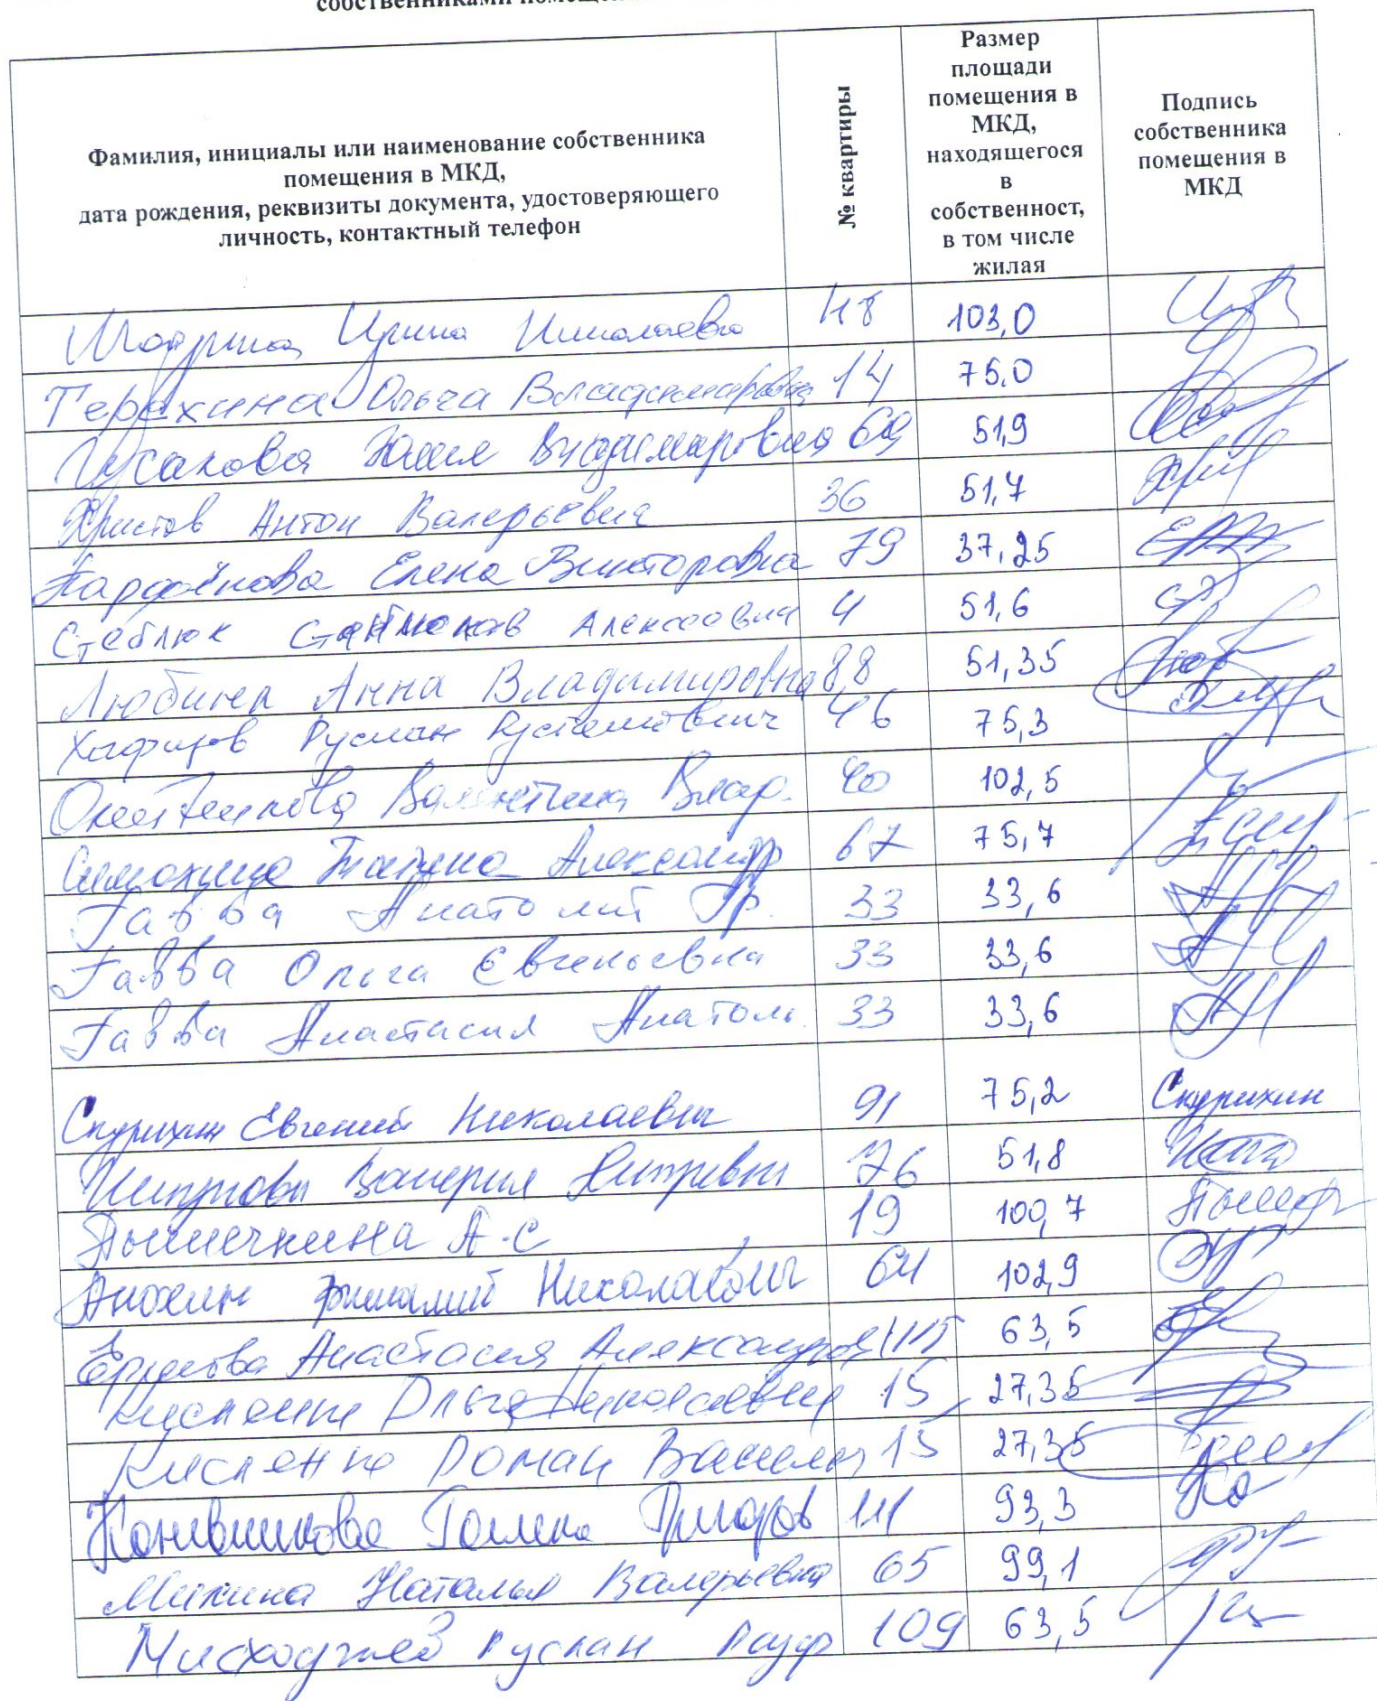 собственниками помещений
Фамилия, инициалы или наименование собственника
помещения в МКД,
дата рождения, реквизиты документа, удостоверяющего
личность, контактный телефон
№ квартиры
Размер
площади
помещения в
МКД,
находящегося
в
собственност,
в том числе
жилая
Подпись
собственника
помещения в
МКД
Ирина Николаевна 48 103,0
Терехина Ольга Владимировна 14 75,0
Гусакова Юлия Владимировна 69 51,9
Христов Антон Валерьевич 36 51,7
Парфёнова Елена Викторовна 79 37,25
Стеблюк Алексеевич 4 51,6
Любина Анна Владимировна 88 51,35
Хафизов Руслан Рустемович 46 75,3
Валентина Влад. 40 102,5
Симохина Татьяна Александр 67 75,7
Гавва Анатолий Гр. 33 33,6
Гавва Ольга Евгеньевна 33 33,6
Гавва Анастасия Анатоль. 33 33,6
Скурихин Евгений Николаевич 91 75,2 Скурихин
Валерия 76 51,8
Пышечкина А.С 19 100,7
Анохин Николаевич 64 102,9
Ершова Анастасия Александров 115 63,5
Кисленко Ольга Николаевна 15 27,35
Кисленко Роман Васильев 15 27,35
Галина Григоров 111 93,3
Микина Наталья Валерьевна 65 99,1
Руслан Рауф 109 63,5